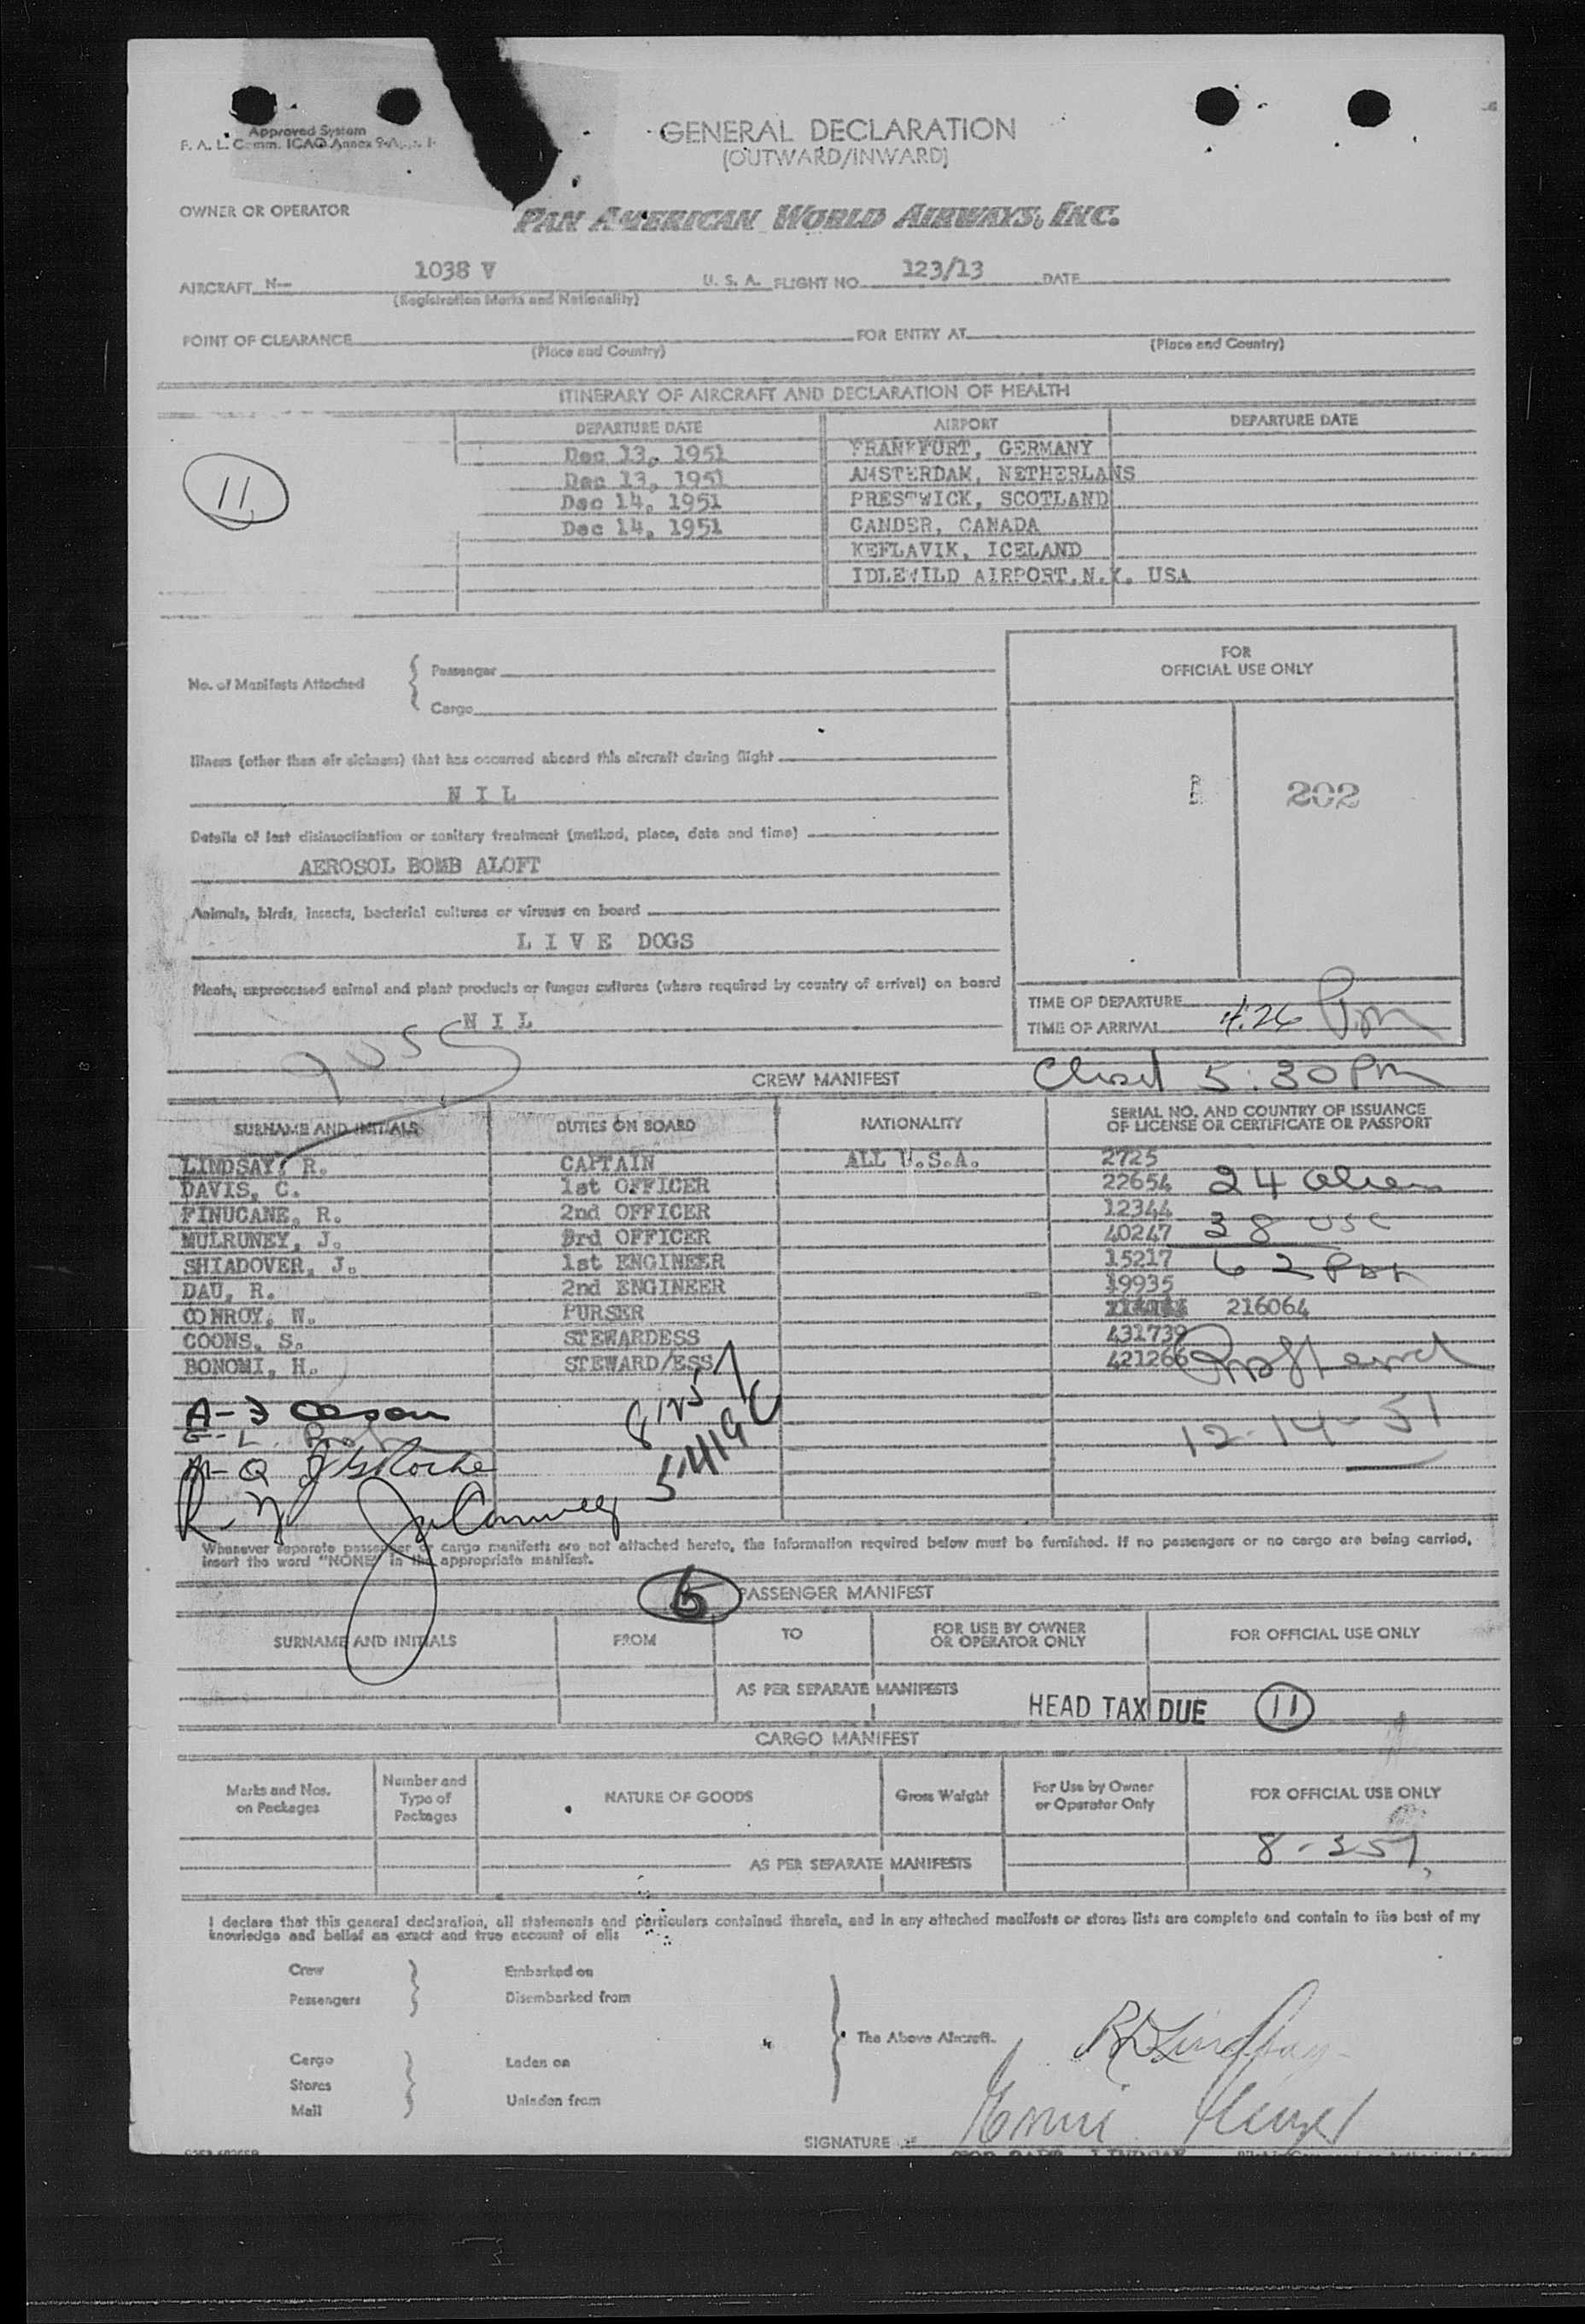 Approved System
F. A. L. Comm. ICAO Annex 9-App. 1-
GENERAL DECLARATION
(OUTWARD/INWARD)
OWNER OR OPERATOR PAN AMERICAN WORLD AIRWAYS, INC.
AIRCRAFT N— 1038 V U. S. A. FLIGHT NO. 123/13 DATE
(Registration Marks and Nationality)
POINT OF CLEARANCE FOR ENTRY AT
(Place and Country) (Place and Country)
ITINERARY OF AIRCRAFT AND DECLARATION OF HEALTH
DEPARTURE DATE AIRPORT DEPARTURE DATE
Dec 13, 1951 FRANKFURT, GERMANY
Dec 13, 1951 AMSTERDAM, NETHERLANS
11
Dec 14, 1951 PRESTWICK, SCOTLAND
Dec 14, 1951 GANDER, CANADA
KEFLAVIK, ICELAND
IDLEWILD AIRPORT,N.Y. USA
FOR
OFFICIAL USE ONLY
No. of Manifests Attached
Passenger
Cargo
Illness (other than air sickness) that has occurred aboard this aircraft during flight
N I L
202
Details of last disinsectization or sanitary treatment (method, place, date and time)
AEROSOL BOMB ALOFT
Animals, birds, insects, bacterial cultures or viruses on board
L I V E DOGS
Plants, unprocessed animal and plant products or fungus cultures (where required by country of arrival) on board
N I L
TIME OF DEPARTURE
TIME OF ARRIVAL 4:26 Pm
CREW MANIFEST Closed 5:30 PM
SURNAME AND INITIALS DUTIES ON BOARD NATIONALITY SERIAL NO. AND COUNTRY OF ISSUANCE
OF LICENSE OR CERTIFICATE OR PASSPORT
LINDSAY, R. CAPTAIN ALL U.S.A. 2725
DAVIS, C. 1st OFFICER 22654 24 Aliens
FINUCANE, R. 2nd OFFICER 12344
MULRUNEY, J. 3rd OFFICER 40247 38 USC
SHIADOVER, J. 1st ENGINEER 15217 62
DAU, R. 2nd ENGINEER 19935
CONROY, W. PURSER 216064
COONS, S. STEWARDESS 431739
BONOMI, H. STEWARD/ESS 421266
12-14-51
Whenever separate passenger or cargo manifests are not attached hereto, the information required below must be furnished. If no passengers or no cargo are being carried,
insert the word "NONE" in the appropriate manifest.
PASSENGER MANIFEST
SURNAME AND INITIALS FROM TO FOR USE BY OWNER
OR OPERATOR ONLY FOR OFFICIAL USE ONLY
AS PER SEPARATE MANIFESTS
HEAD TAX DUE 11
CARGO MANIFEST
Marks and Nos.
on Packages
Number and
Type of
Packages
NATURE OF GOODS
Gross Weight
For Use by Owner
or Operator Only
FOR OFFICIAL USE ONLY
AS PER SEPARATE MANIFESTS
I declare that this general declaration, all statements and particulars contained therein, and in any attached manifests or stores lists are complete and contain to the best of my
knowledge and belief an exact and true account of all:
Crew Embarked on
Passengers Disembarked from
The Above Aircraft.
Cargo Laden on
Stores
Mail Unladen from
SIGNATURE